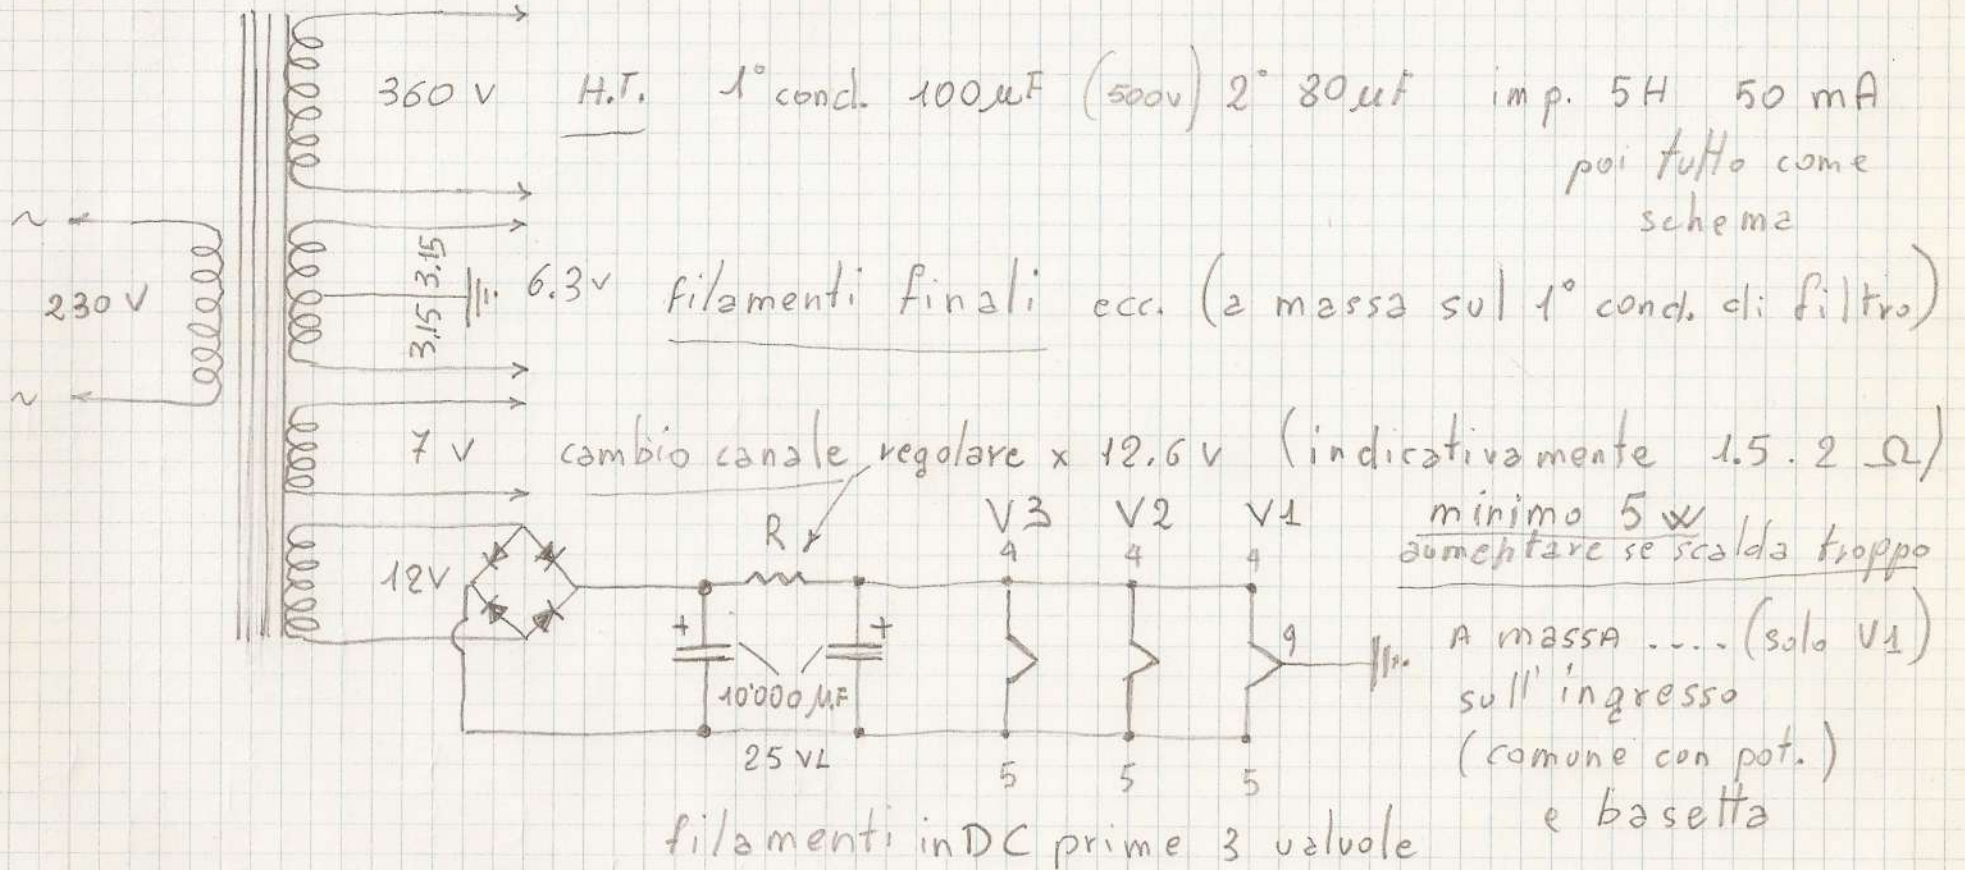 360 V H.T. 1° cond. 100µF (500v) 2° 80µF imp. 5H 50 mA
poi tutto come
schema
~
230 V
~
3.15 3.15 6.3v filamenti finali ecc. (a massa sul 1° cond. di filtro)
7 V cambio canale regolare x 12.6 v (indicativamente 1.5.2 Ω)
minimo 5 W
aumentare se scalda troppo
R V3 V2 V1
4 4 4
12V
+ + 9
10'000 µF
25 VL
5 5 5
A massA .... (solo V1)
sull'ingresso
(comune con pot.)
e basetta
filamenti in DC prime 3 valvole